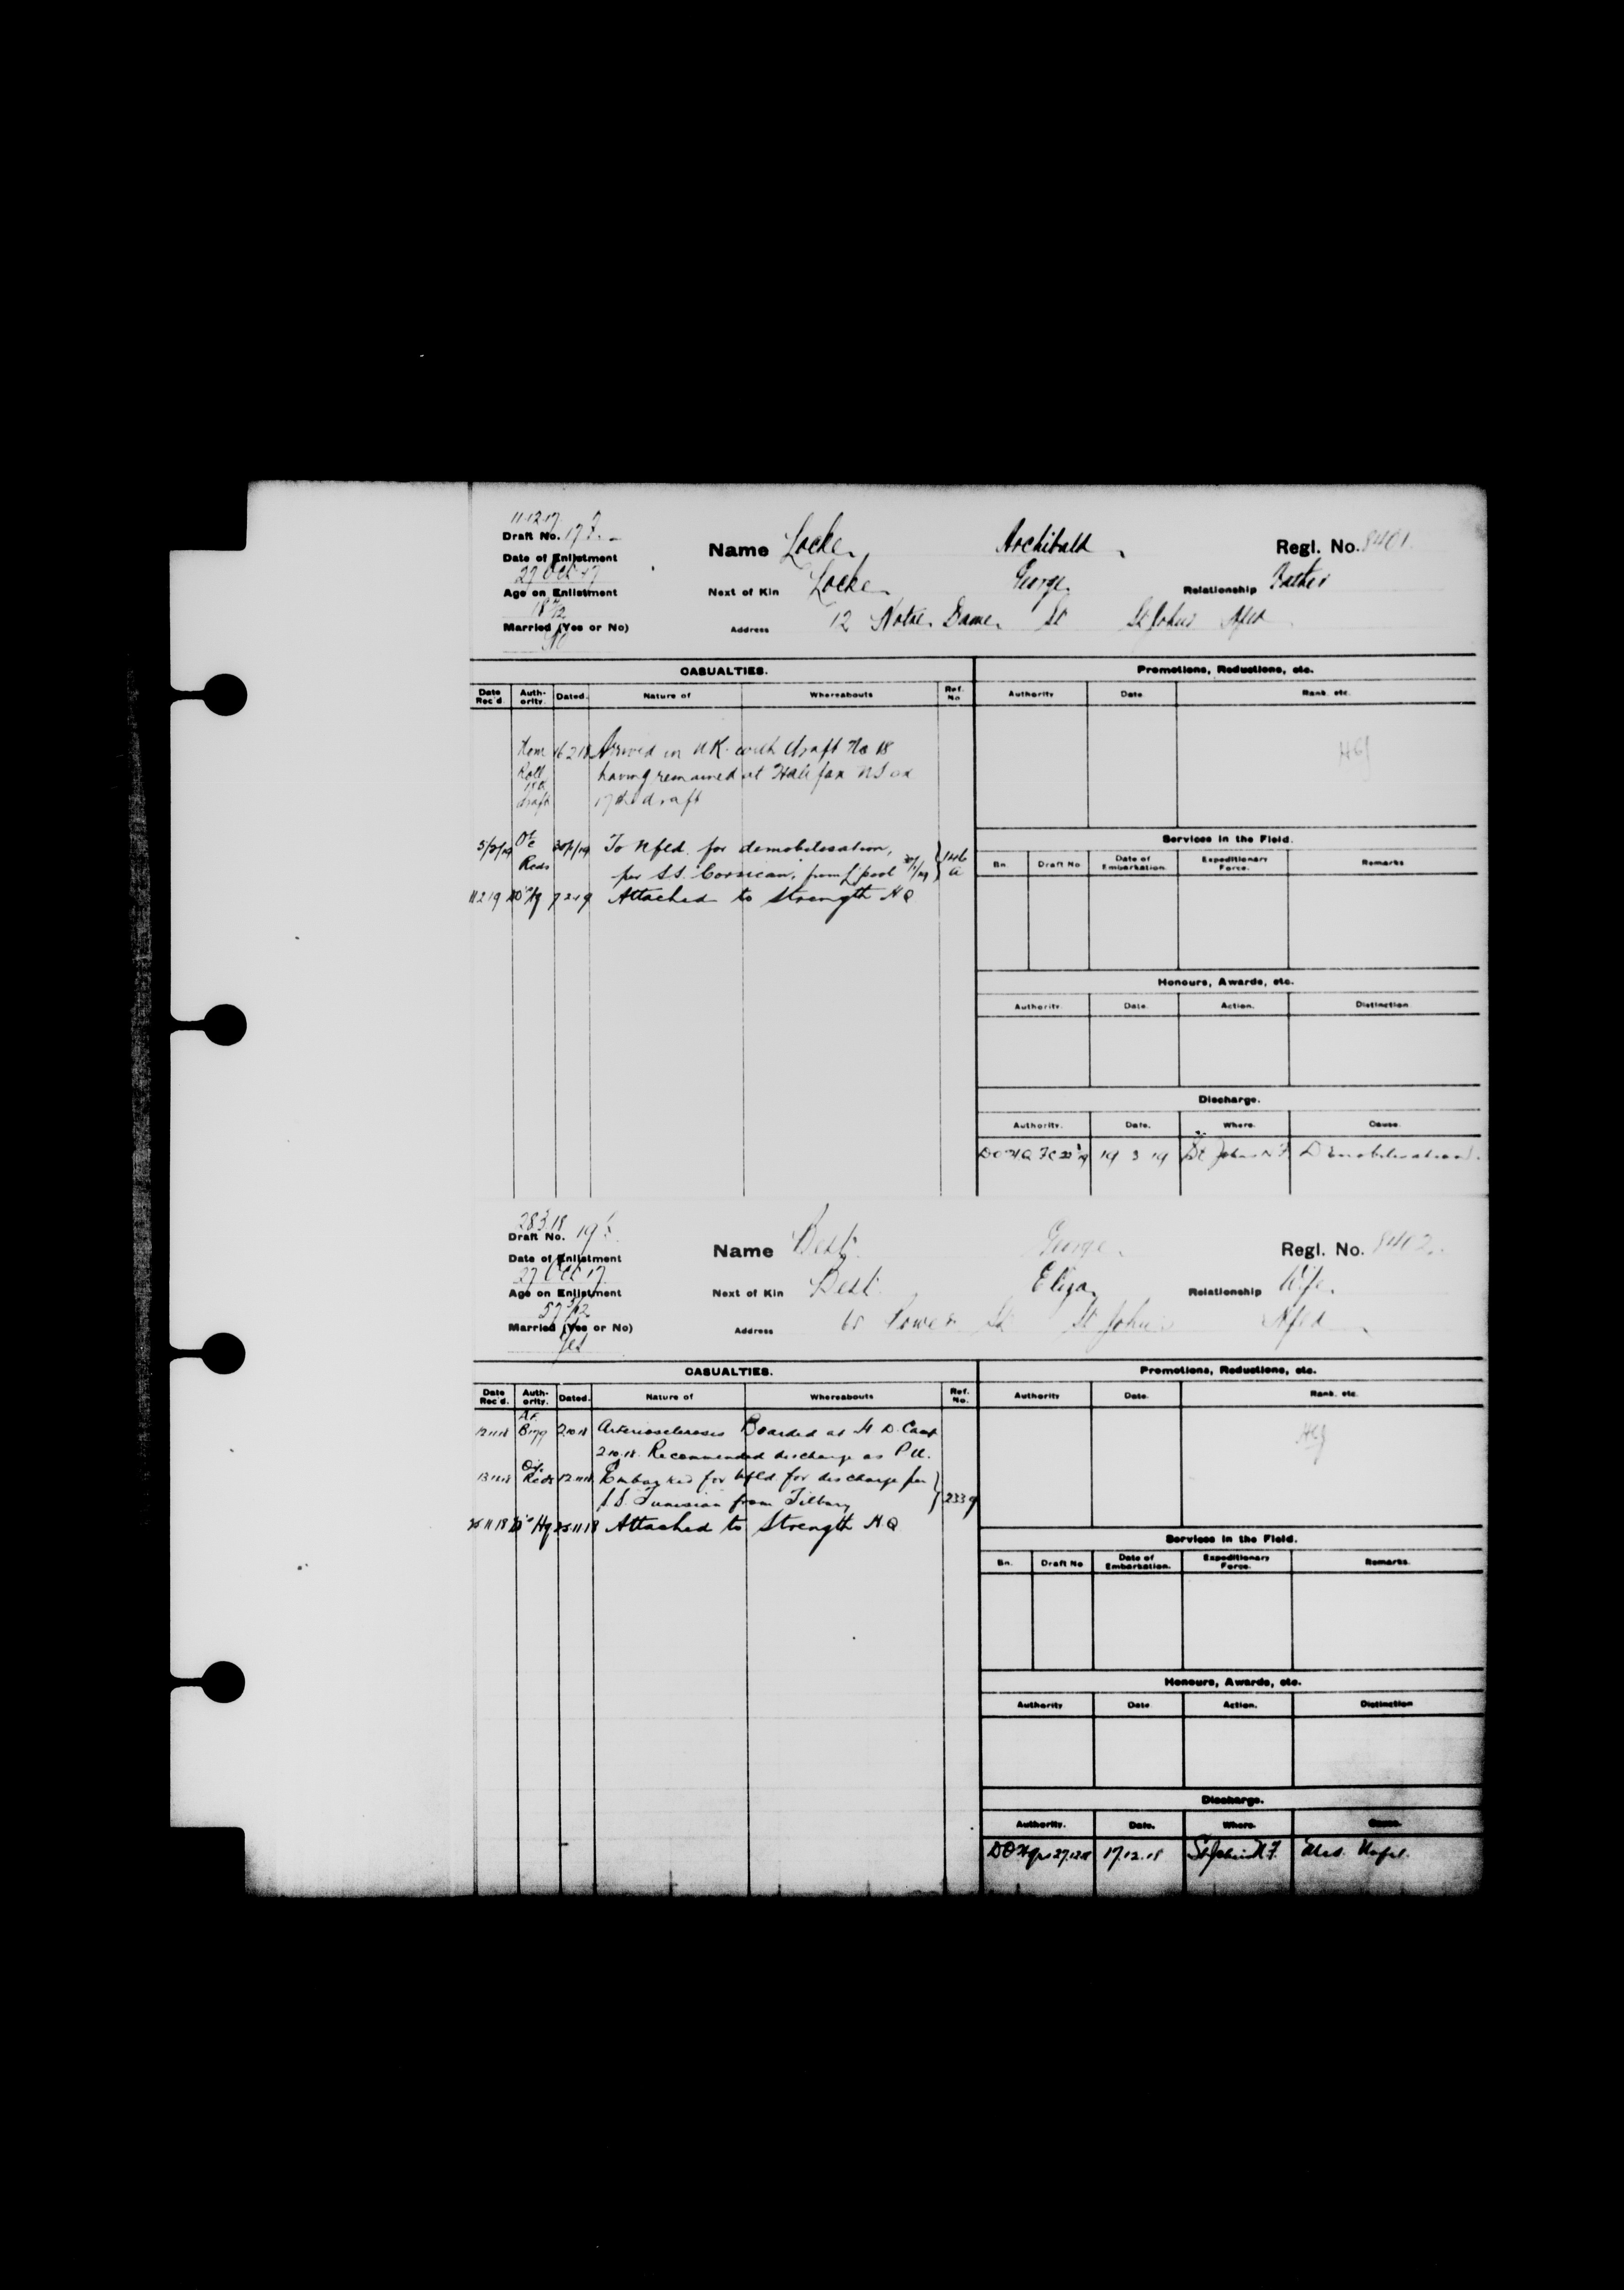 11.12.17
Draft No. 17
Name Locke, Archibald Regl. No. 8401.
Date of Enlistment
27 Oct 17
Next of Kin Locke George Relationship Father
Age on Enlistment
18
Address 12 Notre Dame St St Johns Nfld
Married (Yes or No)
No
CASUALTIES.
Date Rec'd. Authority. Dated. Nature of Whereabouts Ref. No
Promotions, Reductions, etc.
Authority Date. Rank. etc.
Nom Roll draft 16 2 18 Arrived in UK with draft No 18
having remained at Halifax NS ex
17th draft
5/2/19 Recds 30/1/19 To Nfld. for demobilisation,
per S.S. Corsican, from L'pool
11 2 19 DO Hq 7 2 19 Attached to Strength HQ
Services in the Field.
Bn. Draft No Date of Embarkation. Expeditionary Force. Remarks
Honours, Awards, etc.
Authority. Date. Action. Distinction
Discharge.
Authority. Date. Where. Cause.
19 3 19 St John's N.F. Demobilisation.
28.3.18
Draft No. 19
Name Best George Regl. No. 8402.
Date of Enlistment
27 Oct 17
Next of Kin Best Eliza Relationship Wife.
Age on Enlistment
Address Power St St John's Nfld
Married (Yes or No)
Yes
CASUALTIES.
Date Rec'd. Authority. Dated. Nature of Whereabouts Ref. No.
Promotions, Reductions, etc.
Authority Date. Rank. etc.
A.F. B179 2.10.18 Arteriosclerosis Boarded at H.D. Camp
2.10.18. Recommended discharge as P.U.
13 11 18 Recds 12 11 18 Embarked for Nfld. for discharge per
S.S. Tunisian from Tilbury 2339
25 11 18 DO Hq 25 11 18 Attached to Strength HQ
Services in the Field.
Bn. Draft No Date of Embarkation. Expeditionary Force. Remarks.
Honours, Awards, etc.
Authority Date Action. Distinction
Discharge.
Authority. Date. Where. Cause.
17.12.18 St John's N.F. Med. Unfit.